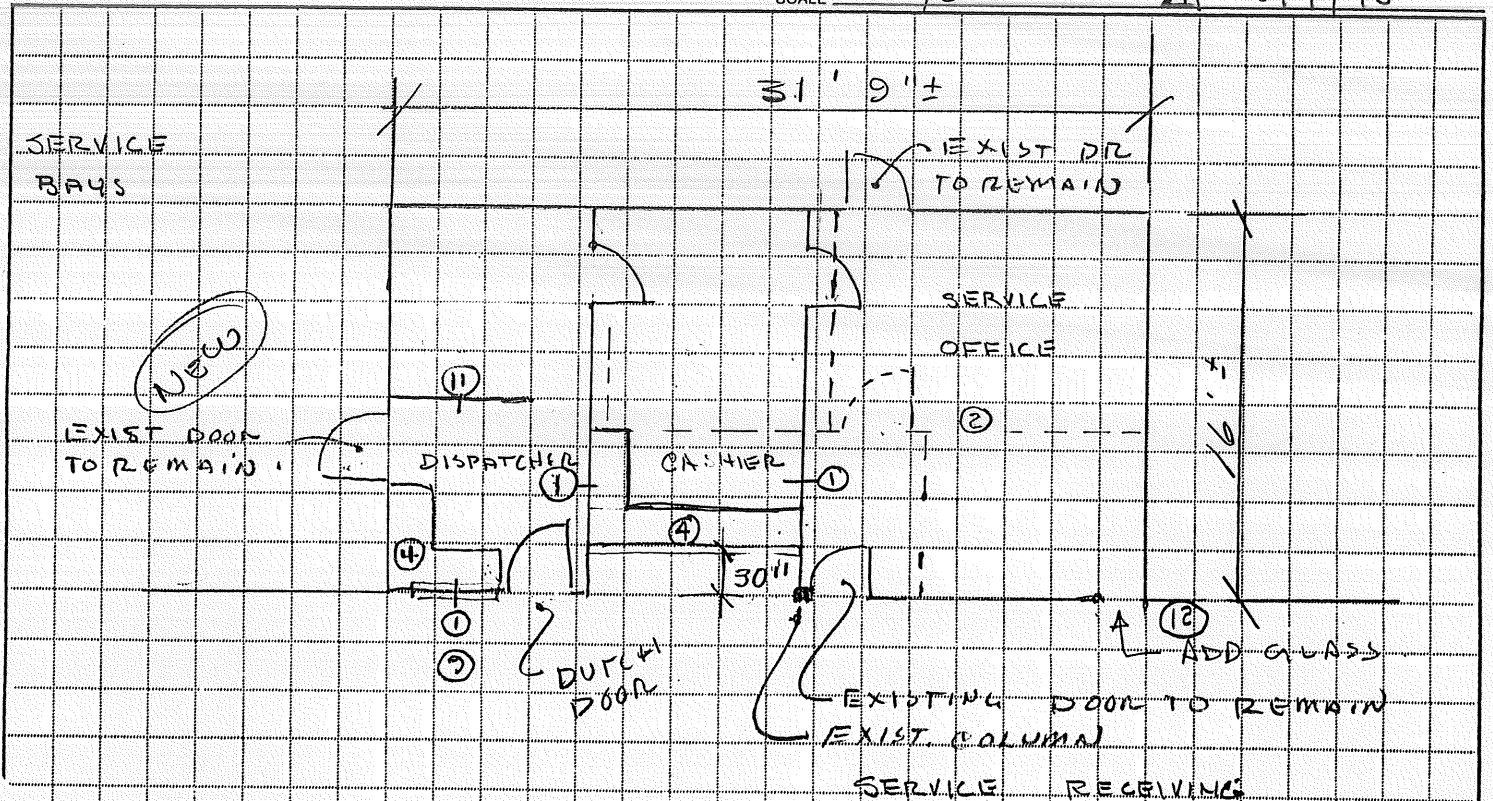 SCALE
31' 9"±
SERVICE
BAYS
EXIST DR
TO REMAIN
NEW
SERVICE
OFFICE
11
2
16'
EXIST DOOR
TO REMAIN.
DISPATCHER
CASHIER
1
1
4
4
30"
1
9
DUTCH
DOOR
12
ADD GLASS
EXISTING DOOR TO REMAIN
EXIST. COLUMN
SERVICE RECEIVING